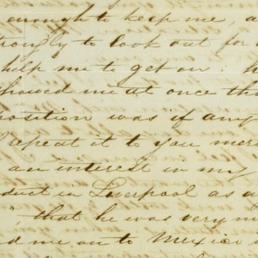 enough to keep me, a
rongly to look out for
help me to get on.
howed me at once tha
position was if any
repeat it to you mere
an interest in my
duct in Liverpool as a
that he was very m
d me on to Mexico